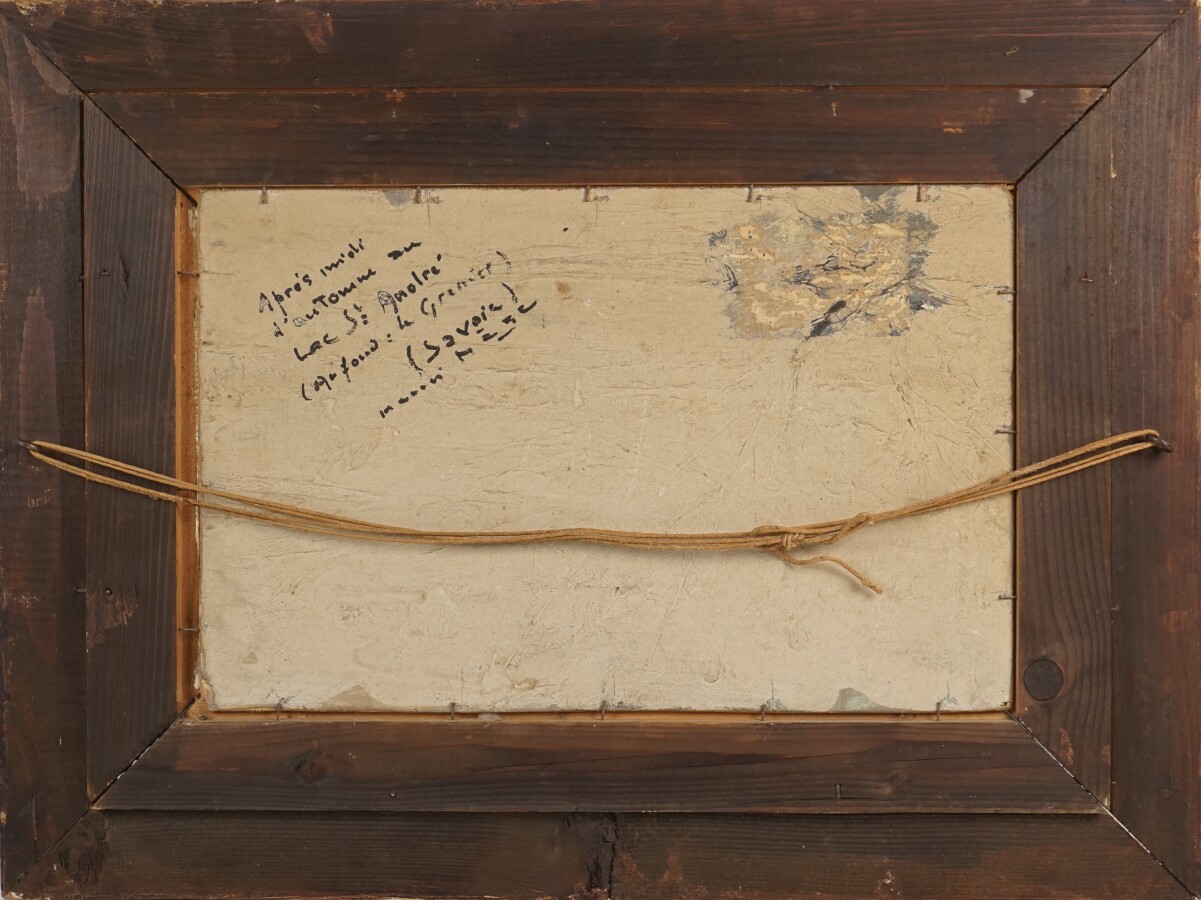 Après midi
d'automne au
Lac St André
(Au fond : le Grenier)
(Savoie)